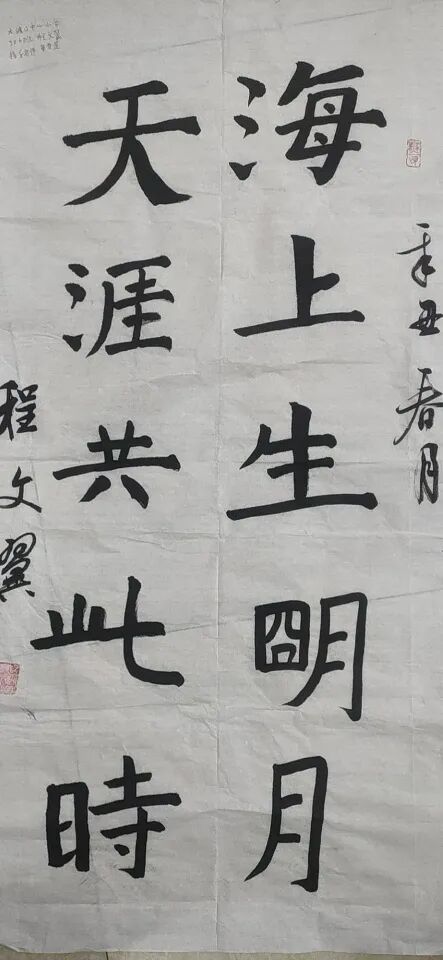 辛丑春月
海上生朙月
天涯共此時
程文翼